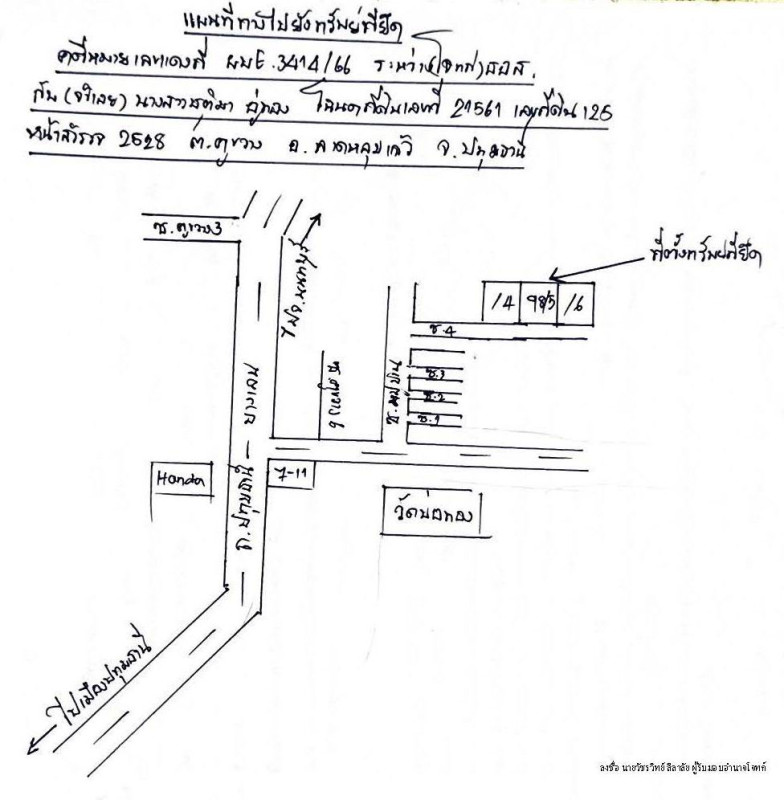 แผนที่ทางไปยังทรัพย์ที่ยึด
คดีหมายเลขแดงที่ ผบE.3414/66 ระหว่าง(โจทก์) ธอส.
กับ (จำเลย) นางสาวสุทิมา อู่ทอง โฉนดที่ดินเลขที่ 21561 เลขที่ดิน 125
หน้าสำรวจ 2528 ต.คูขวาง อ.ลาดหลุมแก้ว จ.ปทุมธานี
ซ.คูขวาง3
ไป จ.นนทบุรี
ที่ตั้งทรัพย์ที่ยึด
14
98/5
16
ซ.4
ซ.3
ซ.2
ซ.1
บางเลน
ถ.ปทุมธานี
Honda
7-11
วัดบ่อทอง
ไปเมืองปทุมธานี
ลงชื่อ นายวัชรวิทย์ ลีลาลัย ผู้รับมอบอำนาจโจทก์